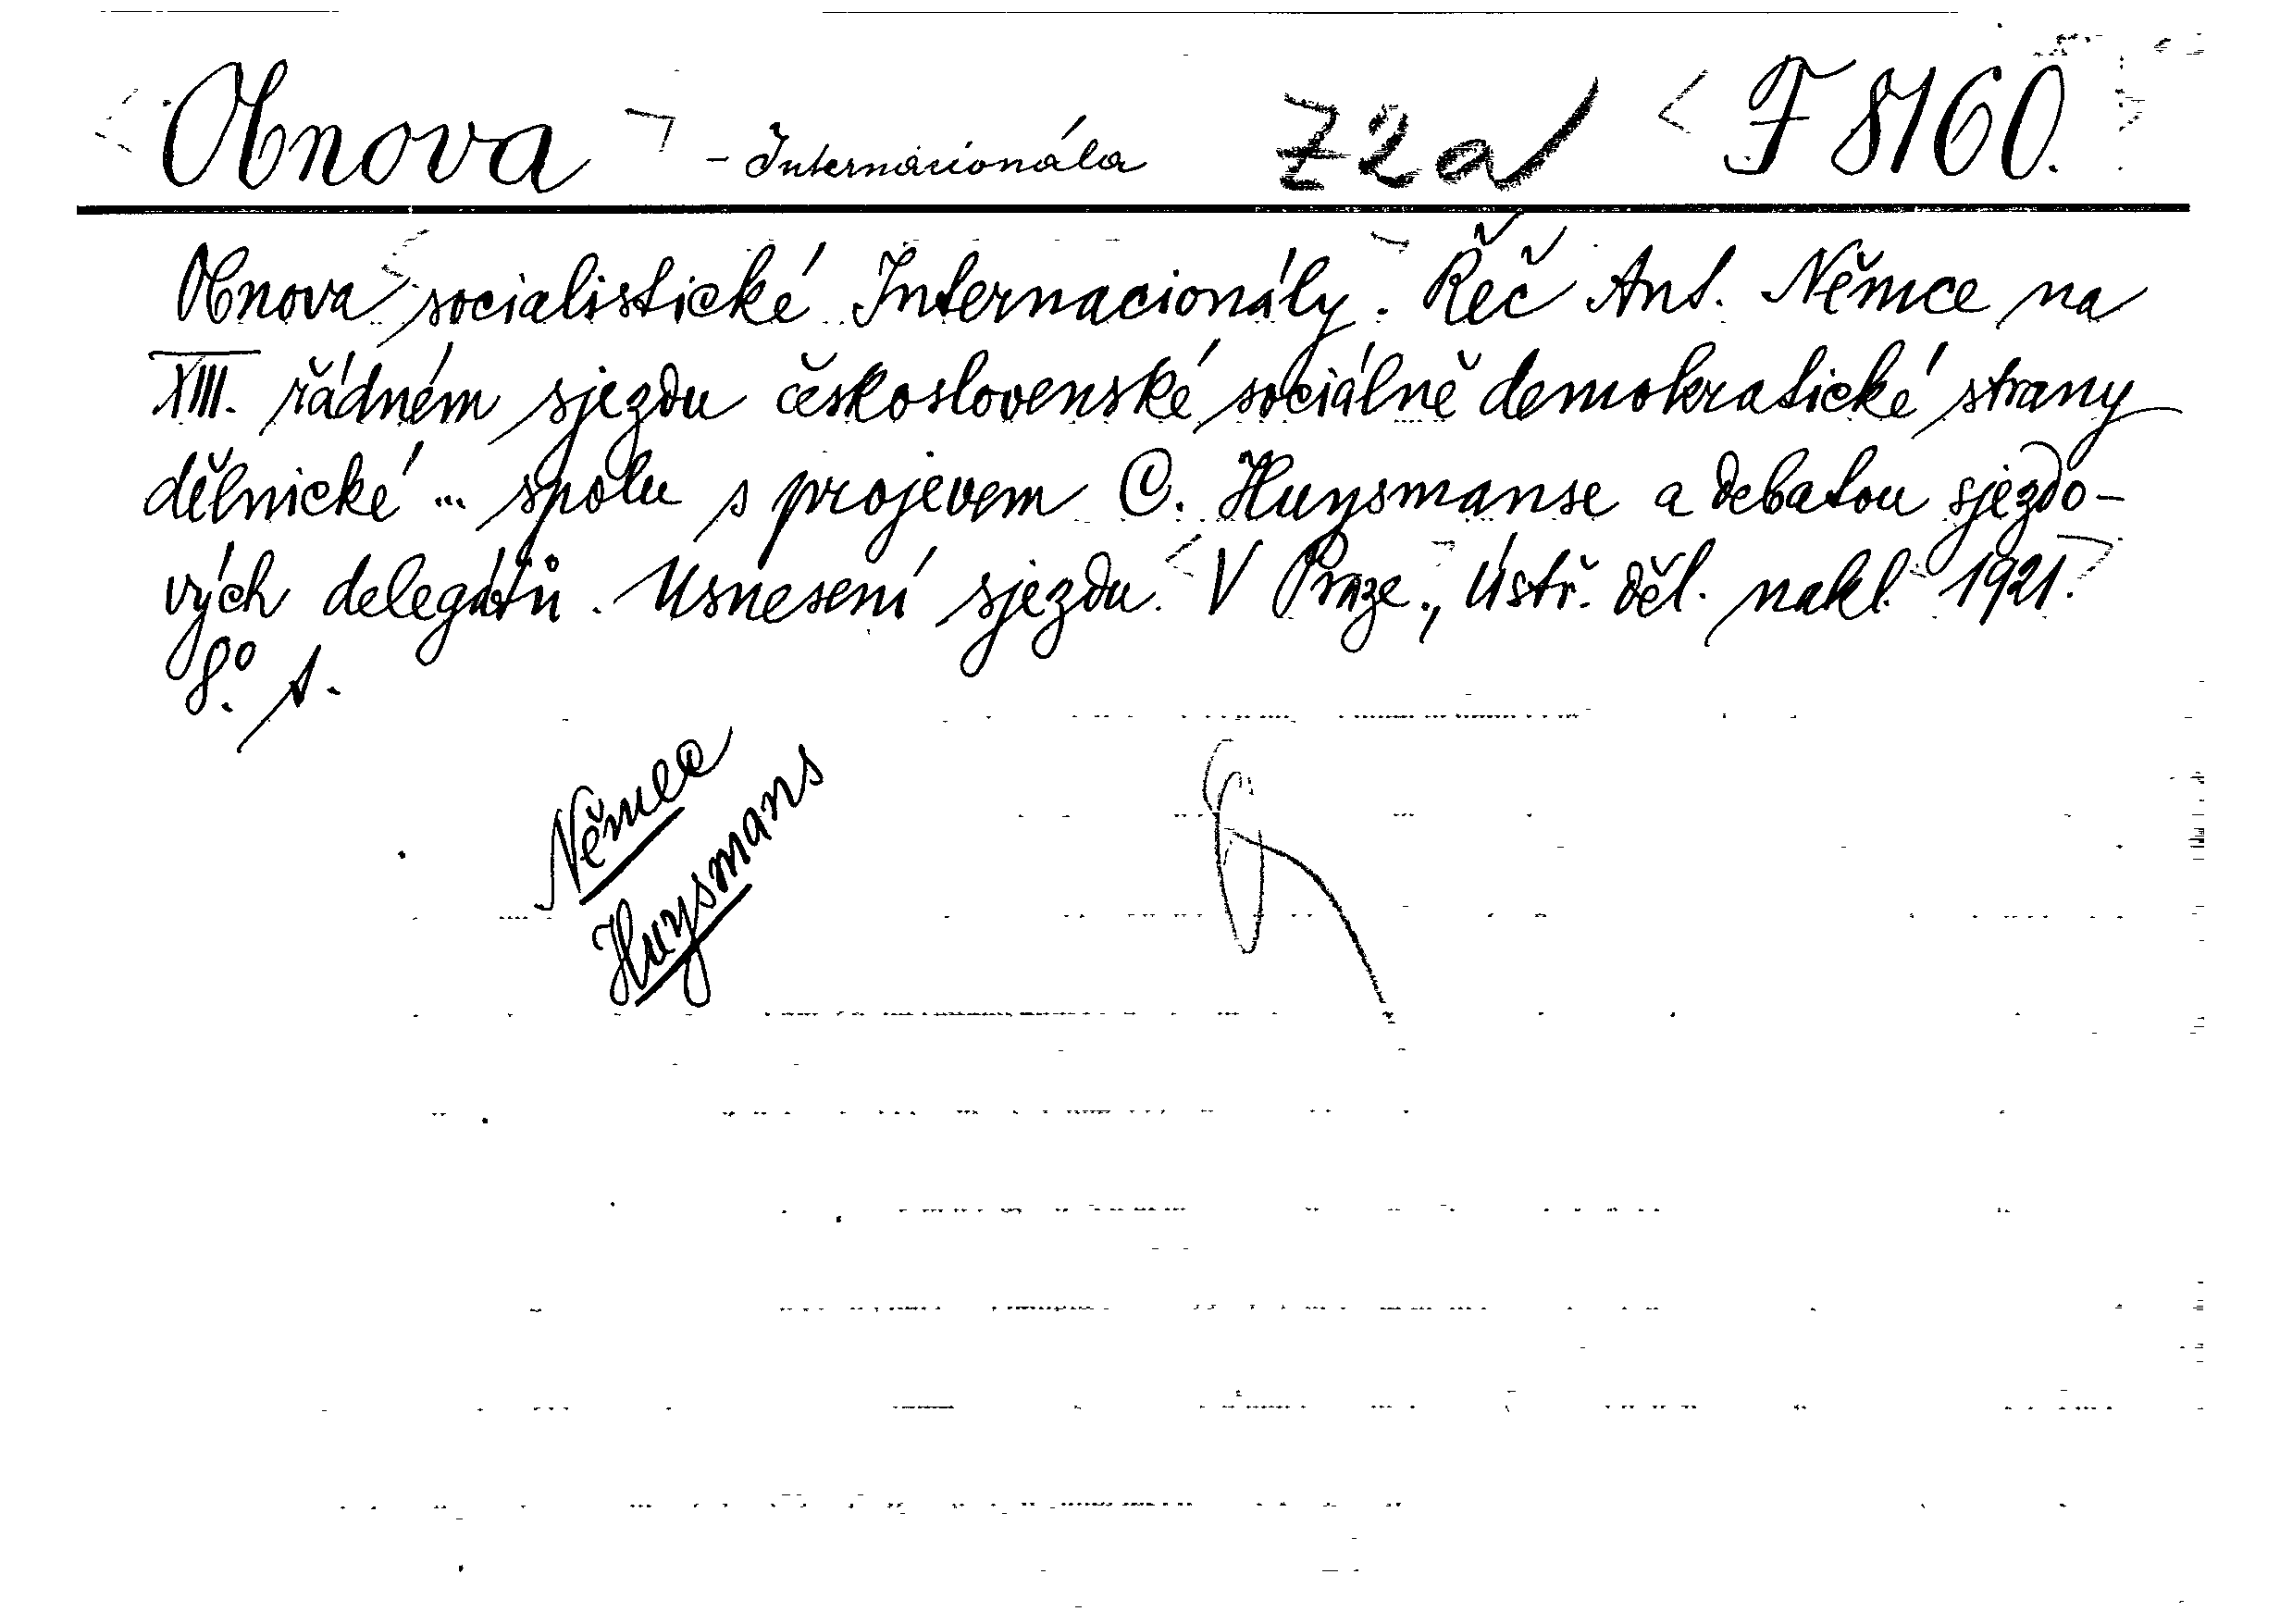 Obnova - Internacionála Z2a F 8160.
Obnova socialistické Internacionály. Řeč Ant. Němce na
XIII. řádném sjezdu československé sociálně demokratické strany
dělnické ... spolu s projevem C. Huysmanse a debatou sjezdo-
vých delegátů. Usnesení sjezdu. V Praze, Ústř. děl. nakl. 1921.
8°. s.
Němec
Huysmans